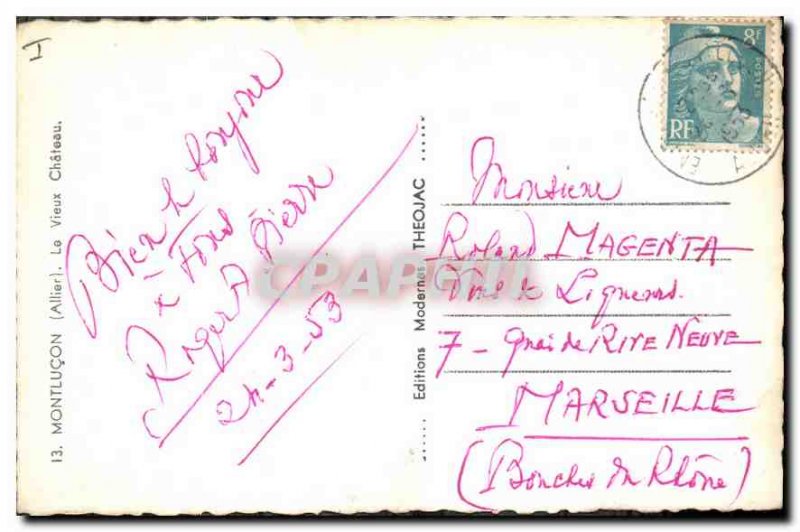 I
13. MONTLUÇON (Allier). Le Vieux Château.
Bien le bonjour
à Tous
Roger Pierre
24-3-53
Editions Modernes THEOJAC
8F
POSTES
RF
Monsieur
Roland MAGENTA
Vins & Liqueurs.
7 - Quai de RIVE NEUVE
MARSEILLE
(Bouches du Rhône)